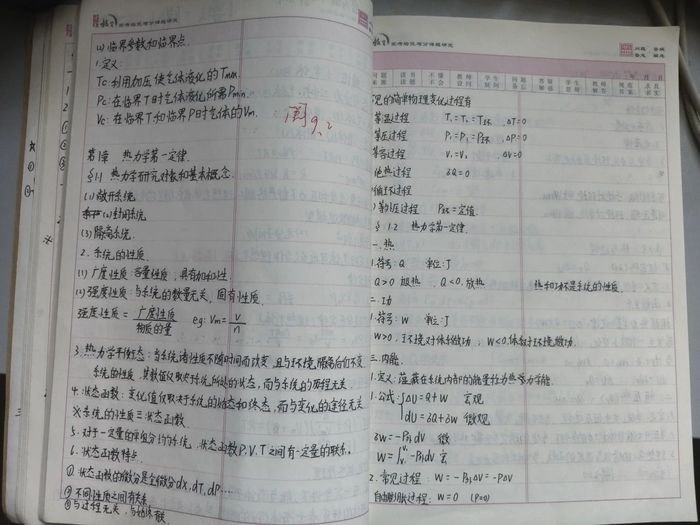 (4) 临界参数和临界点.
1.定义:
Tc:利用加压使气体液化的Tmax.
Pc:在临界T时气体液化所需Pmin.
Vc:在临界T和临界P时气体的Vm.
阅 9.2
第1章 热力学第一定律.
§1.1 热力学研究对象和基本概念.
(1)敞开系统.
(2)封闭系统
(3)隔离系统.
2.系统的性质.
(1)广度性质:容量性质,具有加和性.
(2)强度性质:与系统的数量无关,固有性质.
强度性质 = 广度性质/物质的量 eg: Vm = V/n
3.热力学平衡态:当系统诸性质不随时间而改变,且与环境隔离后仍不变
系统的性质,其数值仅取决于系统所处的状态,而与系统的历程无关.
4.状态函数:变化值仅取决于系统的始态和终态,而与变化的途径无关
※系统的性质三状态函数.
5.对于一定量的单组分均匀系统,状态函数P.V.T之间有一定量的联系.
6.状态函数特点.
①状态函数的微分是全微分dx,dT,dP…
②不同性质之间有关系
③与过程无关,与始终有关
问题 读书 不懂 教师 学生 问题 答疑 学生 教师
来源 语题 不会 设问 疑问 备忘 解惑 思题 解答
见的简单物理变化过程有
等温过程 T₁=T₂=T环 ,ΔT=0
等压过程 P₁=P₂=P环 ,ΔP=0
等容过程 V₁=V₂ ,ΔV=0
绝热过程 δQ=0
循环过程
)等外压过程 P环=定值.
§1.2 热力学第一定律.
一.热
1.符号:Q 单位:J
Q>0 吸热 Q<0.放热 热和功不是系统的性质.
二.功
1.符号:W 单位:J
W>0,环境对体系做功;W<0.体系对环境做功.
三.内能.
1.定义:蕴藏在系统内部的能量称为热力学能.
1.公式:{ΔU=Q+W 宏观
dU=δQ+δW 微观
δW=-P外dV 微
W=∫-P外dV 宏
2.常见过程:W=-P外ΔV=-PΔV
自由膨胀过程:W=0 (P=0)